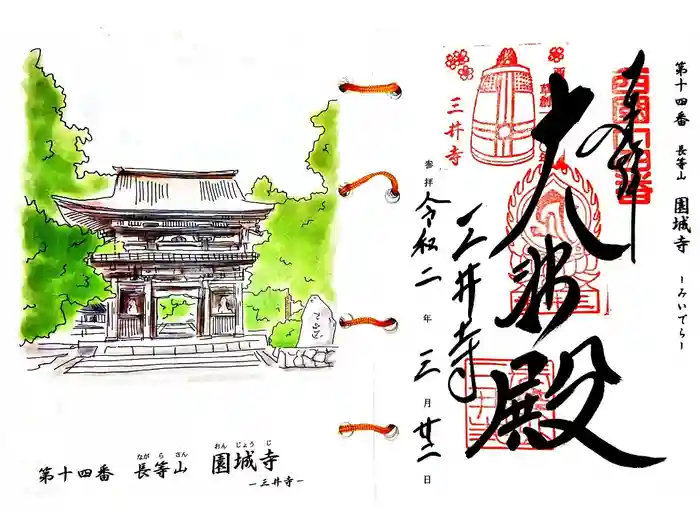 第十四番 長等山 園城寺
ながらさん おんじょうじ
ー三井寺ー
第十四番 長等山 園城寺 ーみいでらー
奉拝
大悲殿
三井寺
参拝 令和二年 三月廿二日
三井寺